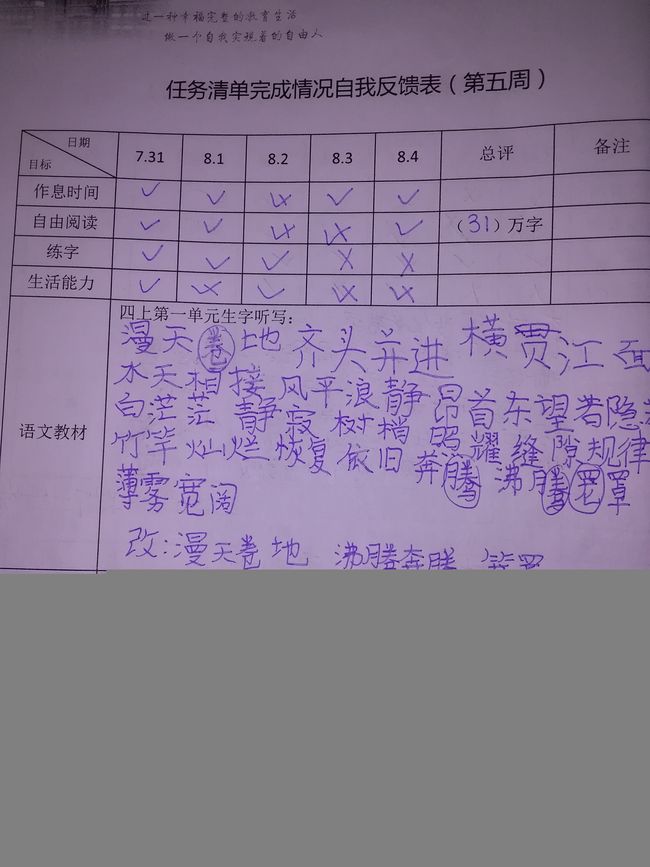 过一种幸福完整的教育生活
做一个自我实现着的自由人
任务清单完成情况自我反馈表（第五周）
日期
目标
7.31 8.1 8.2 8.3 8.4 总评 备注
作息时间
自由阅读 （31）万字
练字
生活能力
语文教材
四上第一单元生字听写：
漫天卷地 齐头并进 横贯江面
水天相接 风平浪静 昂首东望 若隐
白茫茫 静寂 树梢 昭耀 缝隙 规律
竹竿 灿烂 恢复 依旧 奔腾 沸腾 笼罩
薄雾 宽阔
改：漫天卷地 沸腾 奔腾